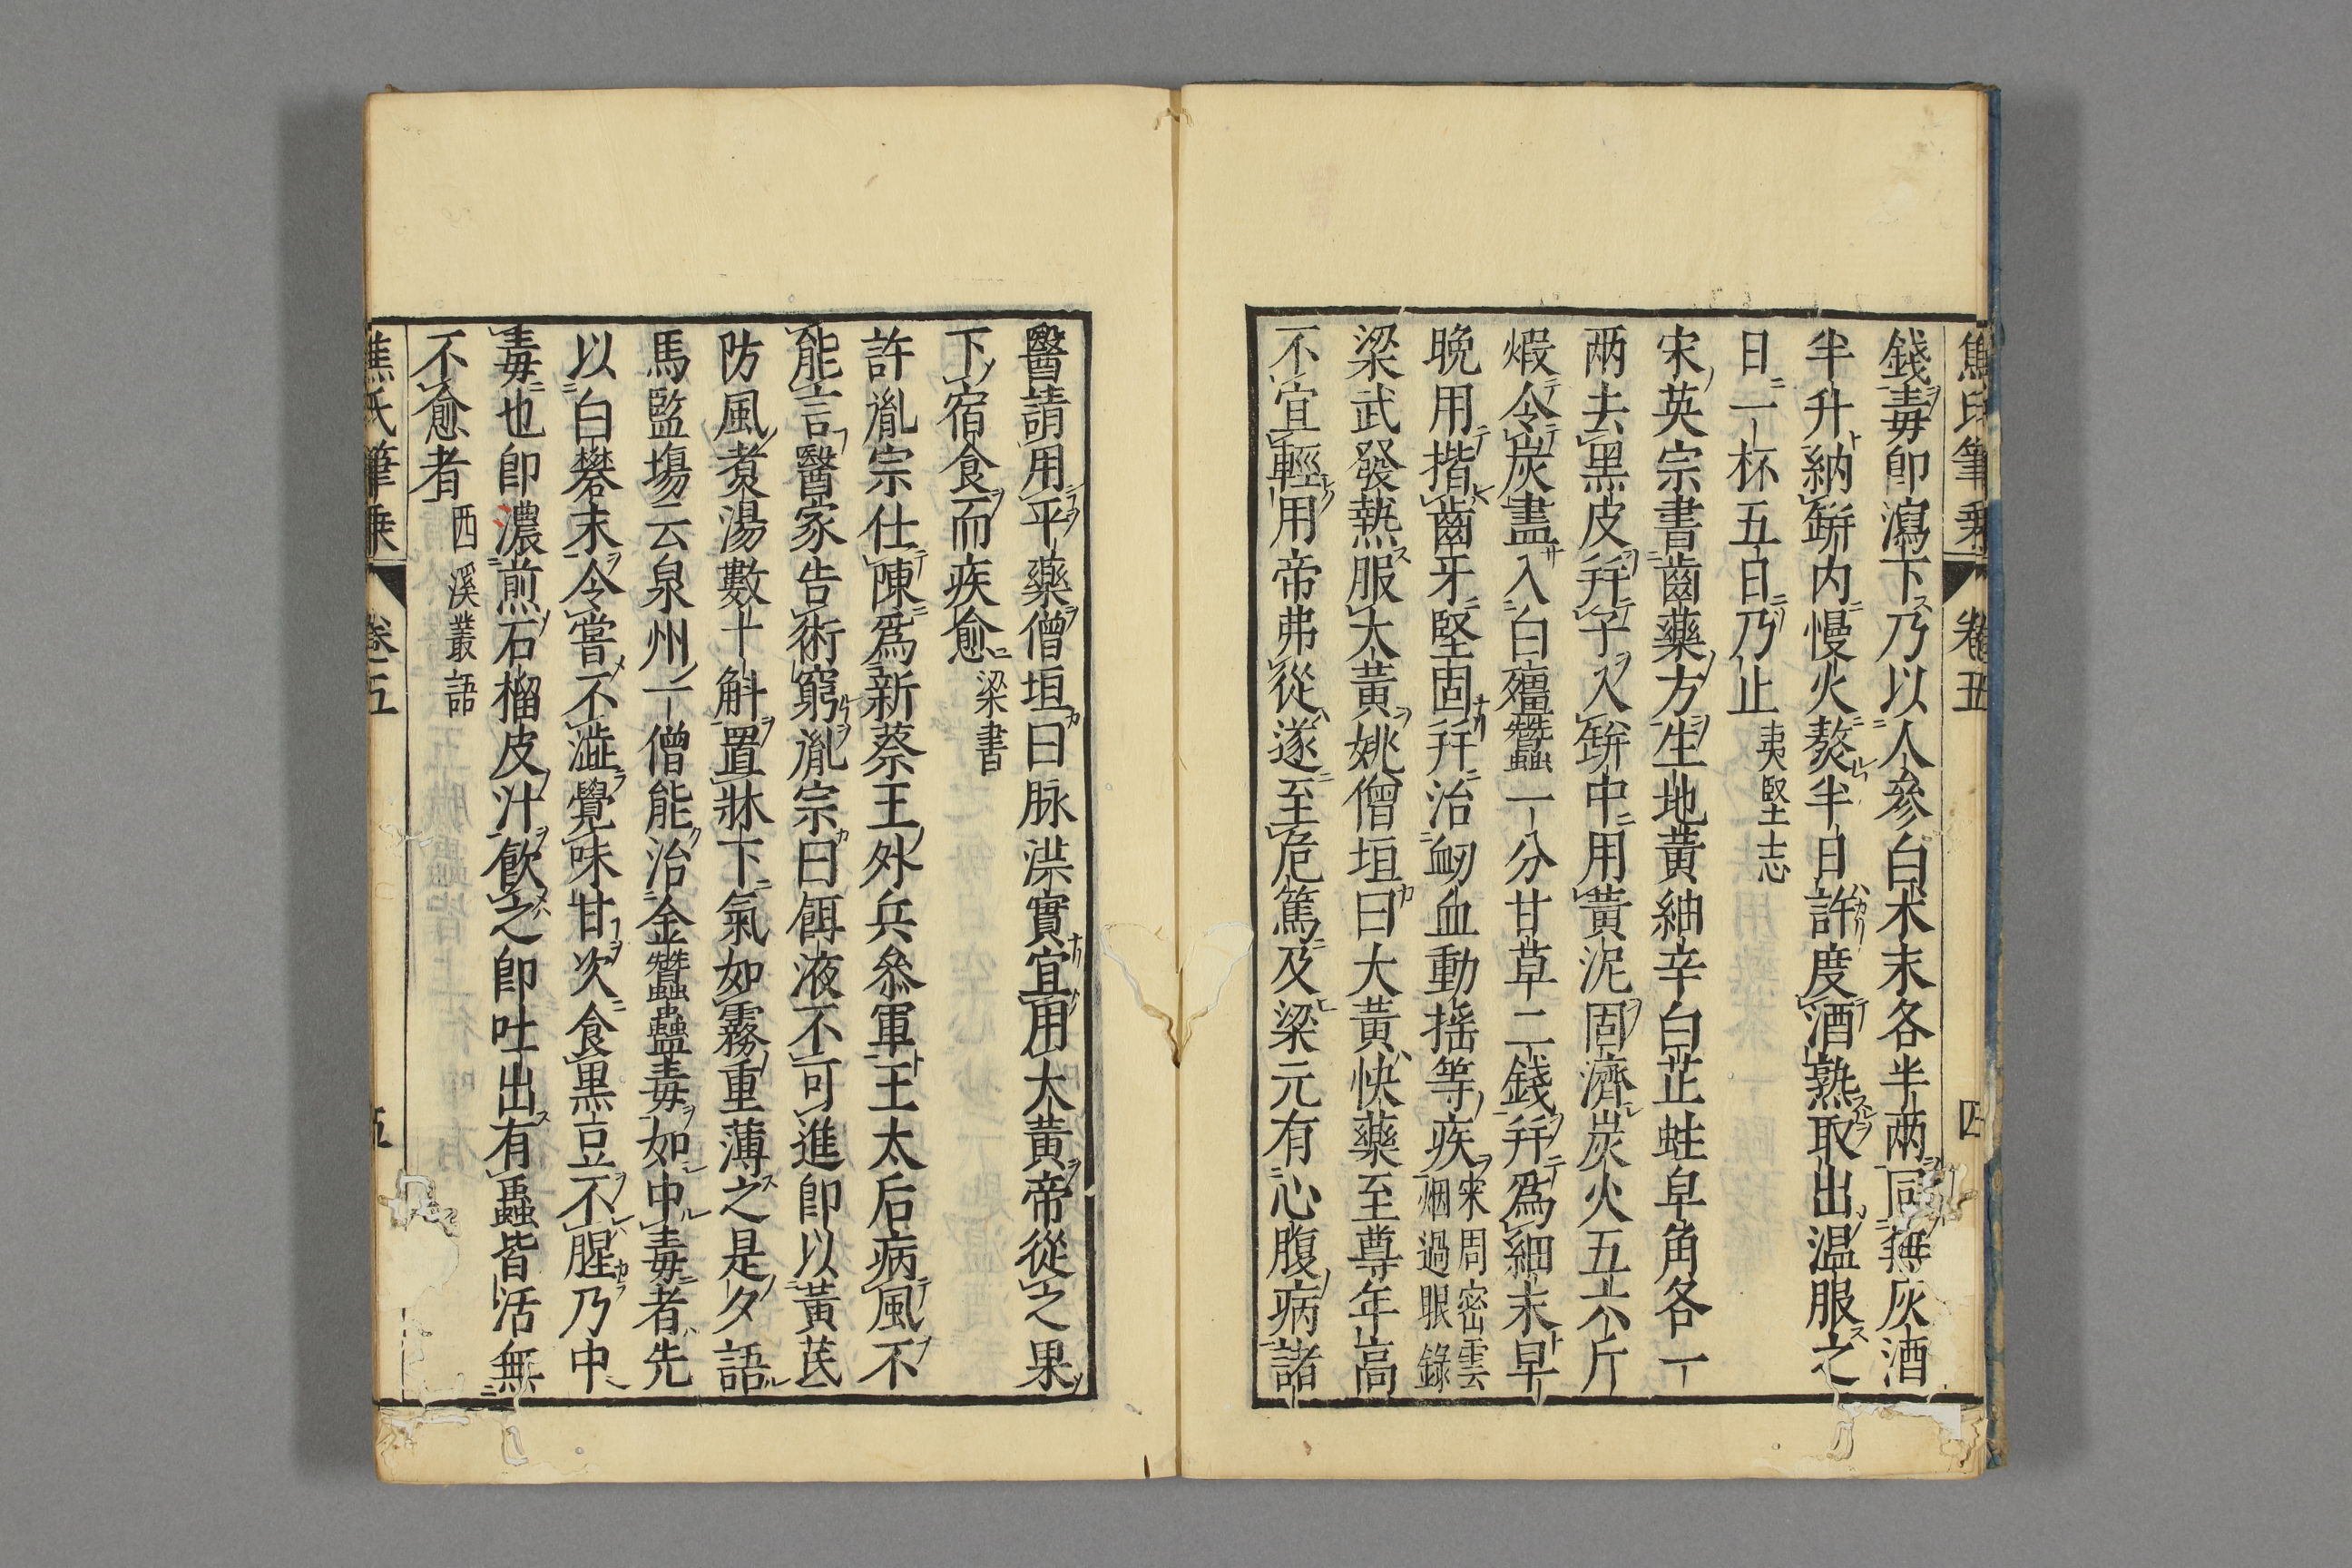 焦氏筆乗 卷五 四
錢毒即瀉下乃以人參白朮末各半兩同無灰酒
半升納缾内慢火熬半日許度酒熟取出温服之
日一杯五日乃止夷堅志
宋英宗書齒藥方生地黄細辛白芷蛀皁角各一
兩去黒皮幷子入缾中用黄泥固濟炭火五六斤
煆令炭盡入白殭蠶一分甘草二錢幷爲細末早
晩用揩齒牙堅固幷治衂血動揺等疾宋周密雲
烟過眼錄
梁武發熱服大黄姚僧垣曰大黄快藥至尊年髙
不宜輕用帝弗從遂至危篤及梁元有心腹病諸
醫請用平藥僧垣曰脉洪實宜用大黄帝從之果
下宿食而疾愈梁書
許胤宗仕陳爲新蔡王外兵叅軍王太后病風不
能言醫家告術窮胤宗曰餌液不可進即以黄芪
防風煑湯數十斛置牀下氣如霧重薄之是夕語
馬監塲云泉州一僧能治金蠶蠱毒如中毒者先
以白礬末令嘗不澁覺味甘次食黒豆不腥乃中
毒也即濃煎石榴皮汁飲之即吐出有蟲皆活無
不愈者西溪叢語
焦氏筆乗 卷五 五